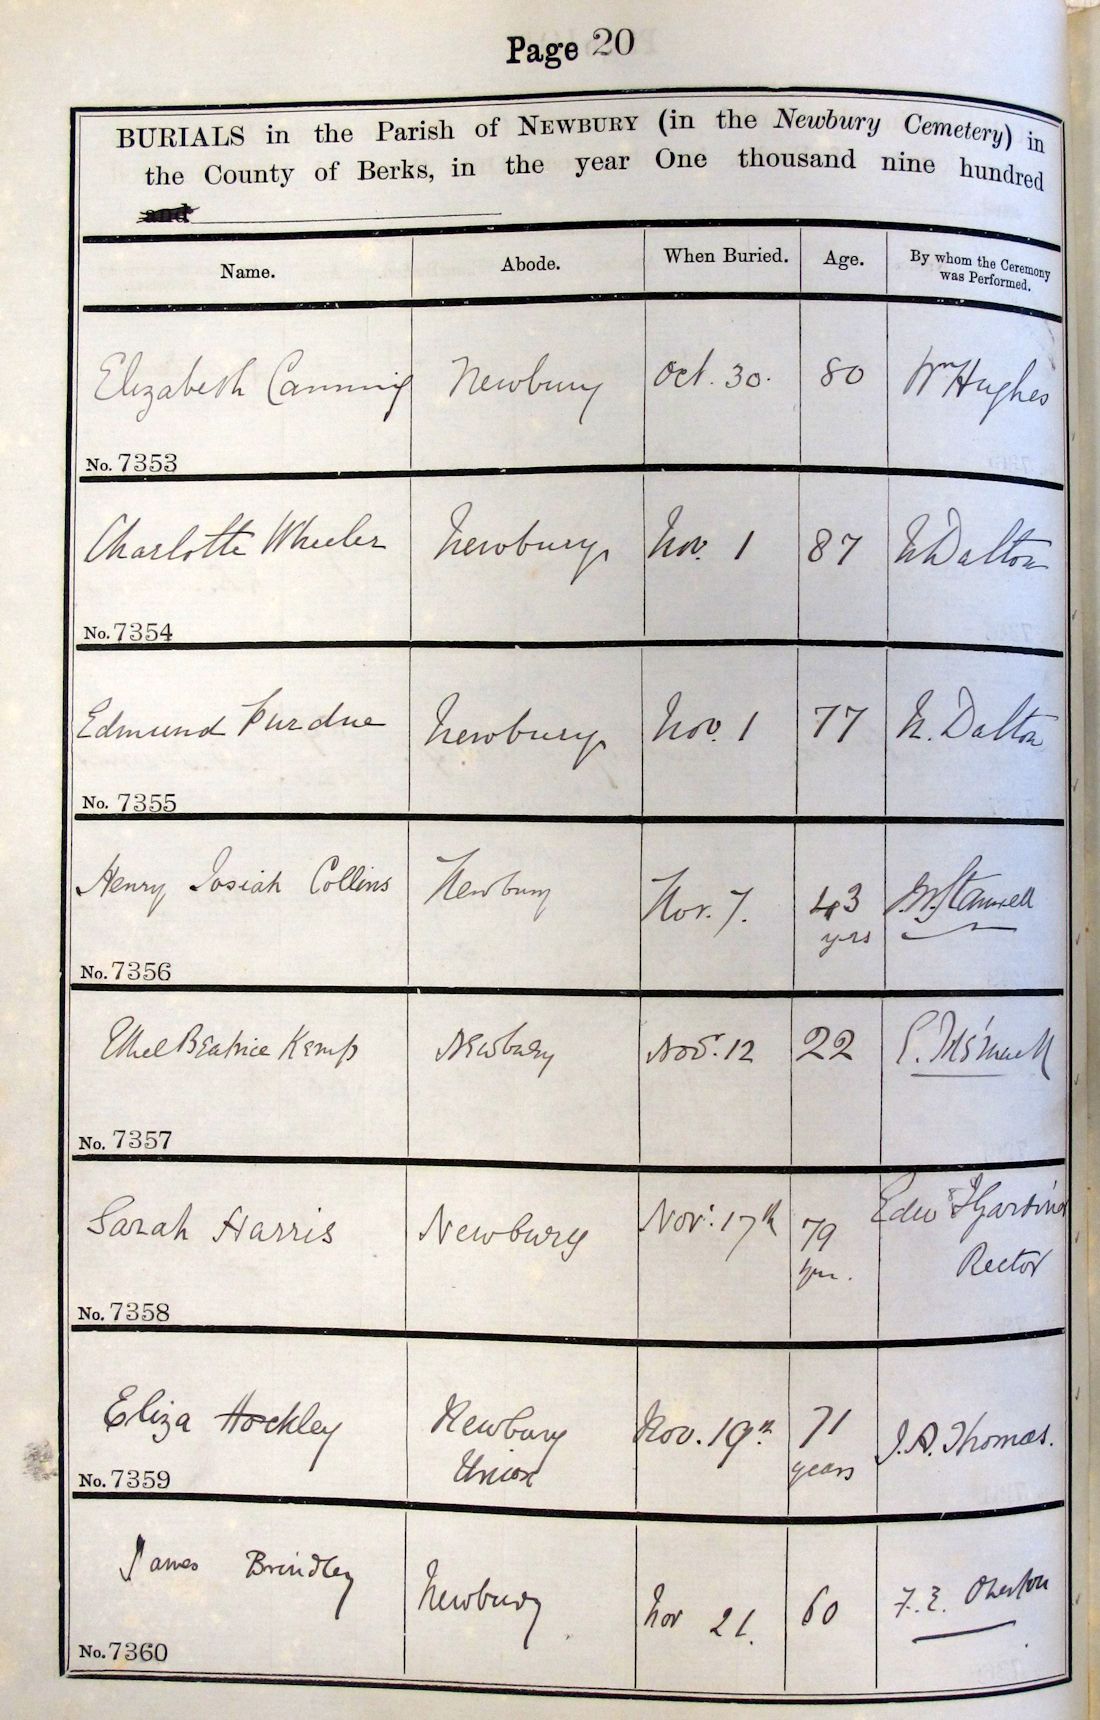 Page 20
BURIALS in the Parish of NEWBURY (in the Newbury Cemetery) in
the County of Berks, in the year One thousand nine hundred
and
Name. Abode. When Buried. Age. By whom the Ceremony
was Performed.
Elizabeth Canning Newbury Oct. 30. 80 Wm Hughes
No. 7353
Charlotte Wheeler Newbury Nov. 1 87 N Dalton
No. 7354
Edmund Purdue Newbury Nov. 1 77 N. Dalton
No. 7355
Henry Josiah Collins Newbury Nov. 7. 43
yrs
No. 7356
Ethel Beatrice Kemp Newbury Nov. 12 22
No. 7357
Sarah Harris Newbury Nov. 17th 79
yrs. Rector
No. 7358
Eliza Hockley Newbury Nov. 19th 71 J. A. Thomas.
Union years
No. 7359
James Brindley Newbury Nov 21. 60 F. E. Overton
No. 7360